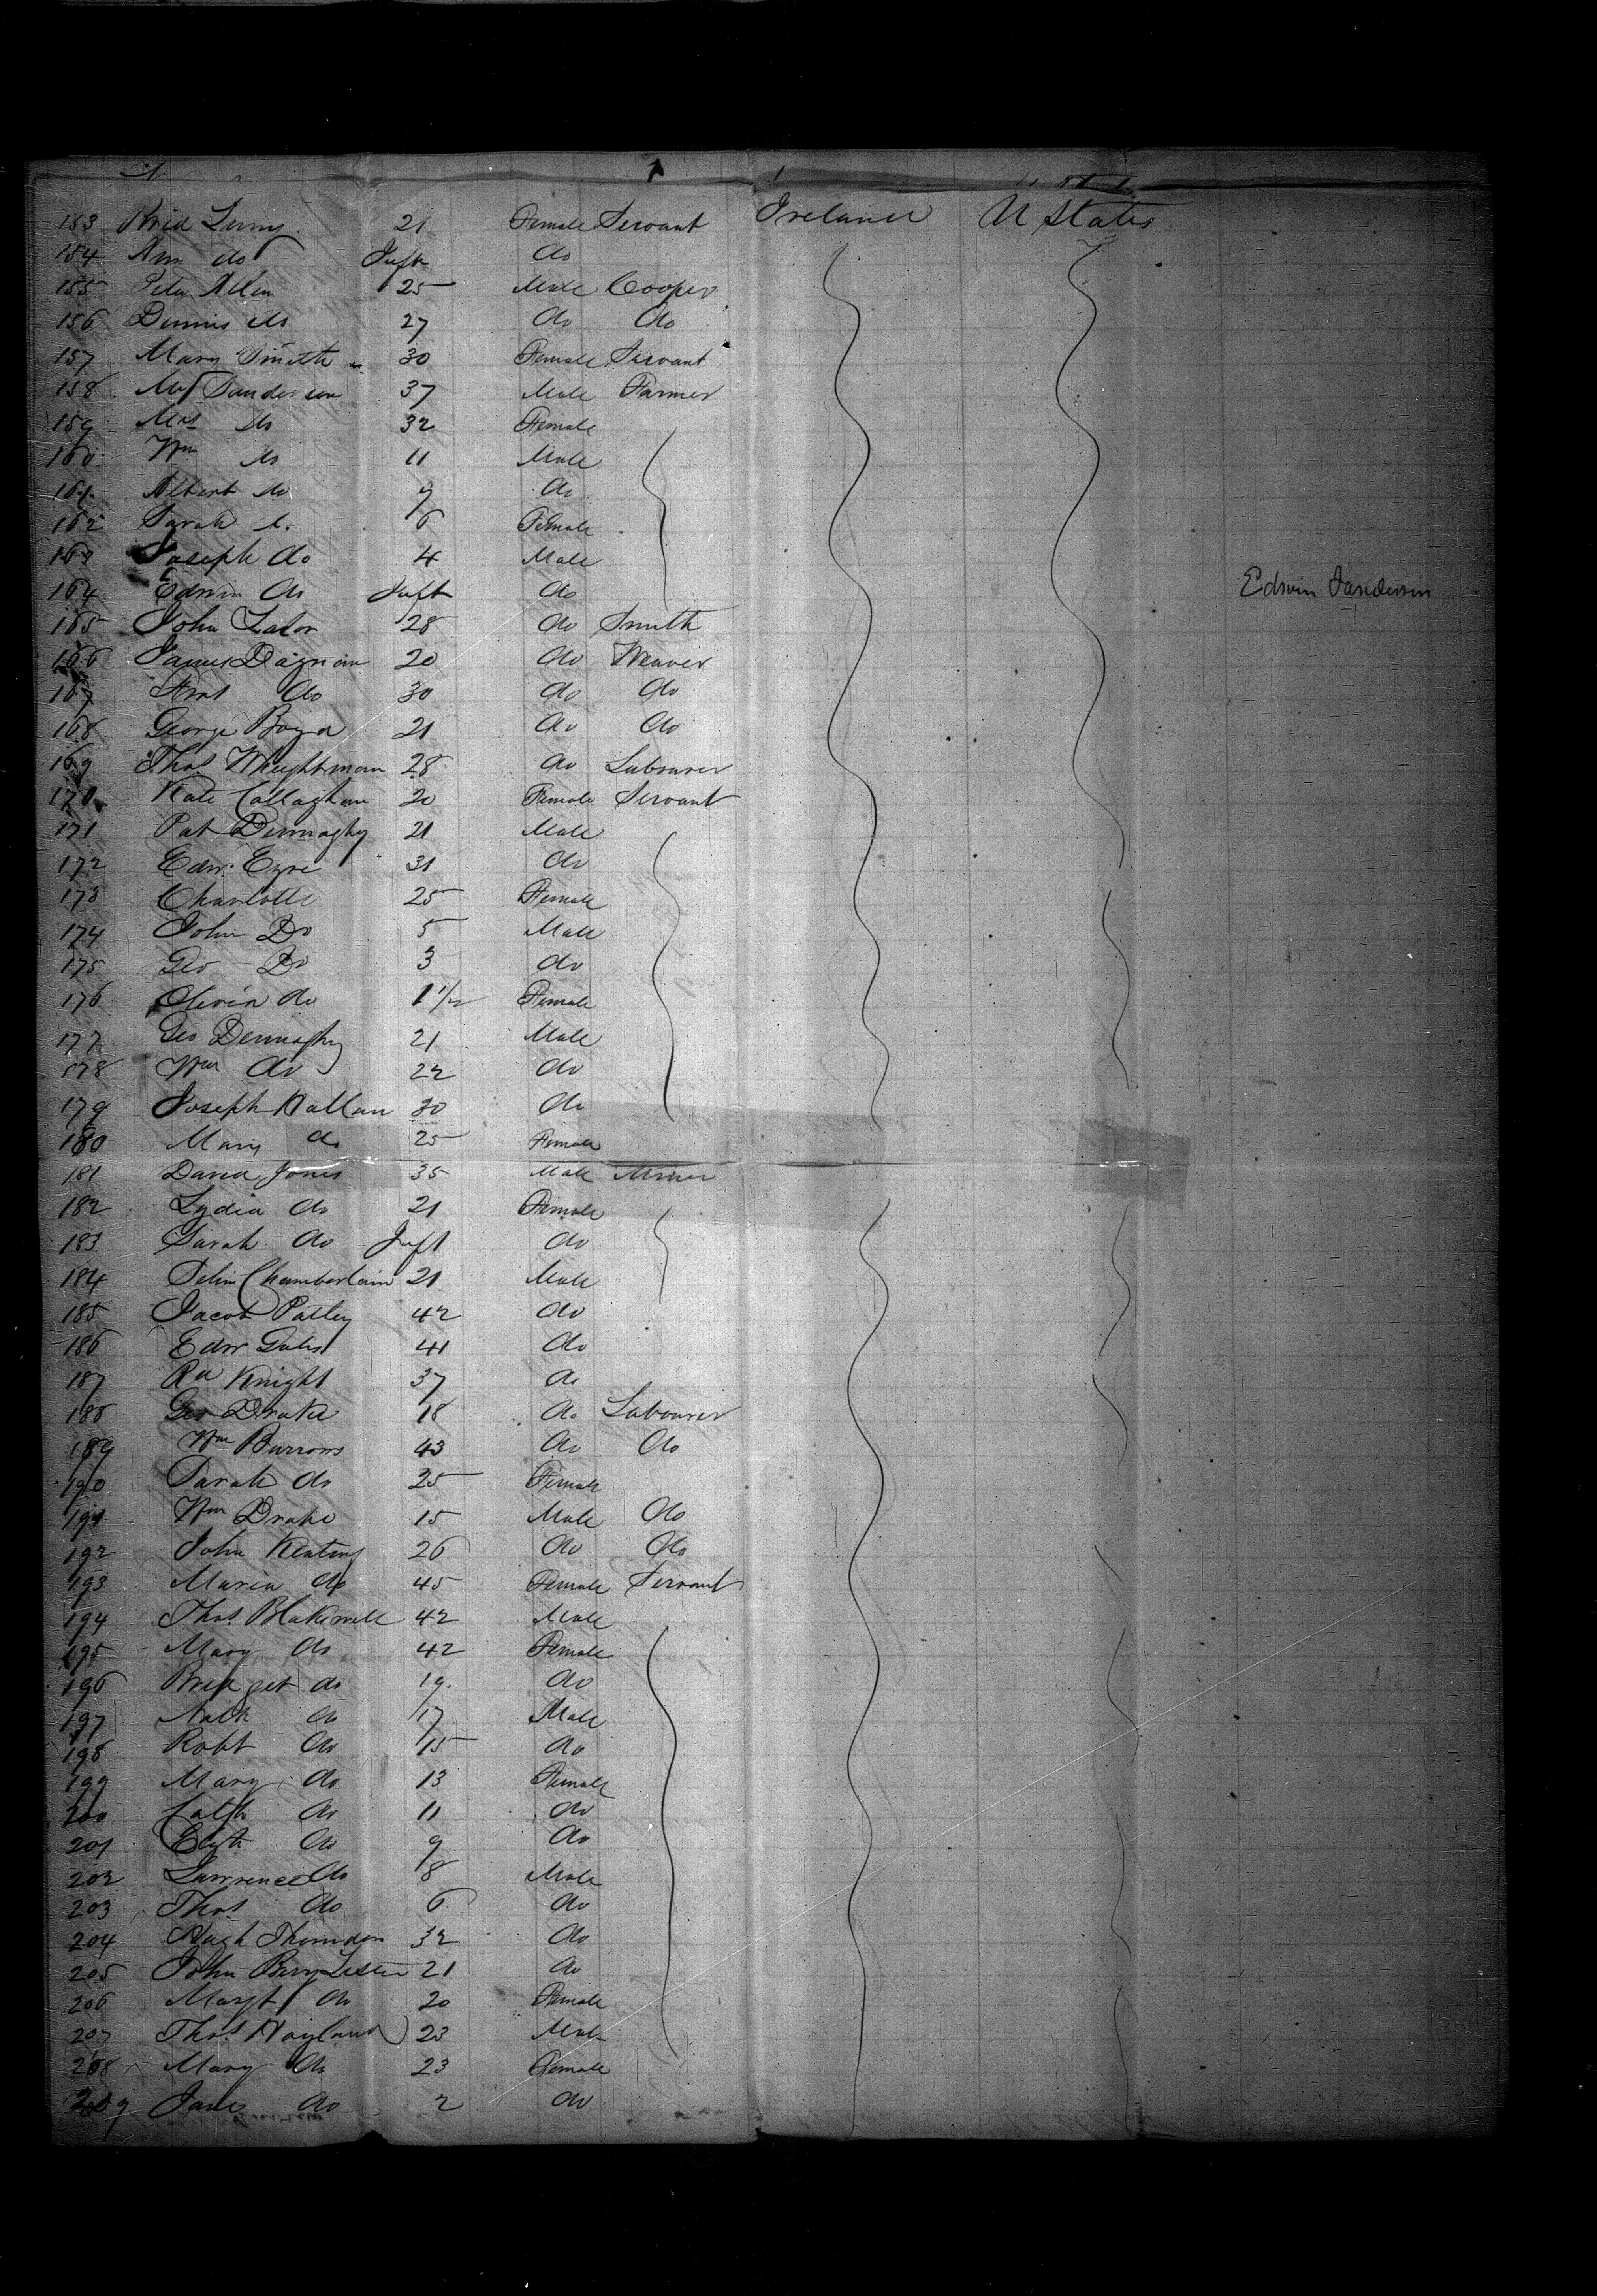 153 Brid 21 Female Servant Ireland U States
154 Ann do Inft do
155 Peter Allen 25 Male Cooper
156 Dennis do 27 do do
157 Mary Smith 30 Female Servant
158 Mr Sanderson 37 Male Farmer
159 Mrs do 32 Female
160 Wm do 11 Male
161 Albert do 9 do
162 Sarah d. 6 Female
163 Joseph do 4 Male
164 Edwin do Inft do Edwin Sanderson
165 John Lalor 28 do Smith
166 James Dignam 20 do Weaver
167 do 30 do do
168 George Boyd 21 do do
169 Thos Wheightman 28 do Labourer
170 Kate Callaghan 20 Female Servant
171 Pat Dennaghy 21 Male
172 Edw. Eyre 31 do
173 Charlotte 25 Female
174 John Do 5 Male
175 Geo Do 3 do
176 Olivia do 1 1/2 Female
177 Geo Dennaghy 21 Male
178 Wm do 22 do
179 Joseph 30 do
180 Mary do 25 Female
181 David Jones 35 Male Miner
182 Lydia do 21 Female
183 Sarah do Inft do
184 Chamberlain 21 Male
185 Jacob Patley 42 do
186 Edw 41 do
187 Rd Knight 37 do
188 Geo Drake 18 do Labourer
189 Wm Burrows 43 do do
190 Sarah do 25 Female
191 Wm Drake 15 Male do
192 John Keating 26 do do
193 Maria do 45 Female Servant
194 Thos Blakewell 42 Male
195 Mary do 42 Female
196 Bridget do 19 do
197 do 17 Male
198 Robt do 15 do
199 Mary do 13 Female
200 Cath do 11 do
201 Elizth do 9 do
202 Lawrence do 8 Male
203 Thos do 6 do
204 Hugh 32 do
205 John 21 do
206 Margt do 20 Female
207 Thos Hayland 23 Male
208 Mary do 23 Female
209 Jane do 2 do